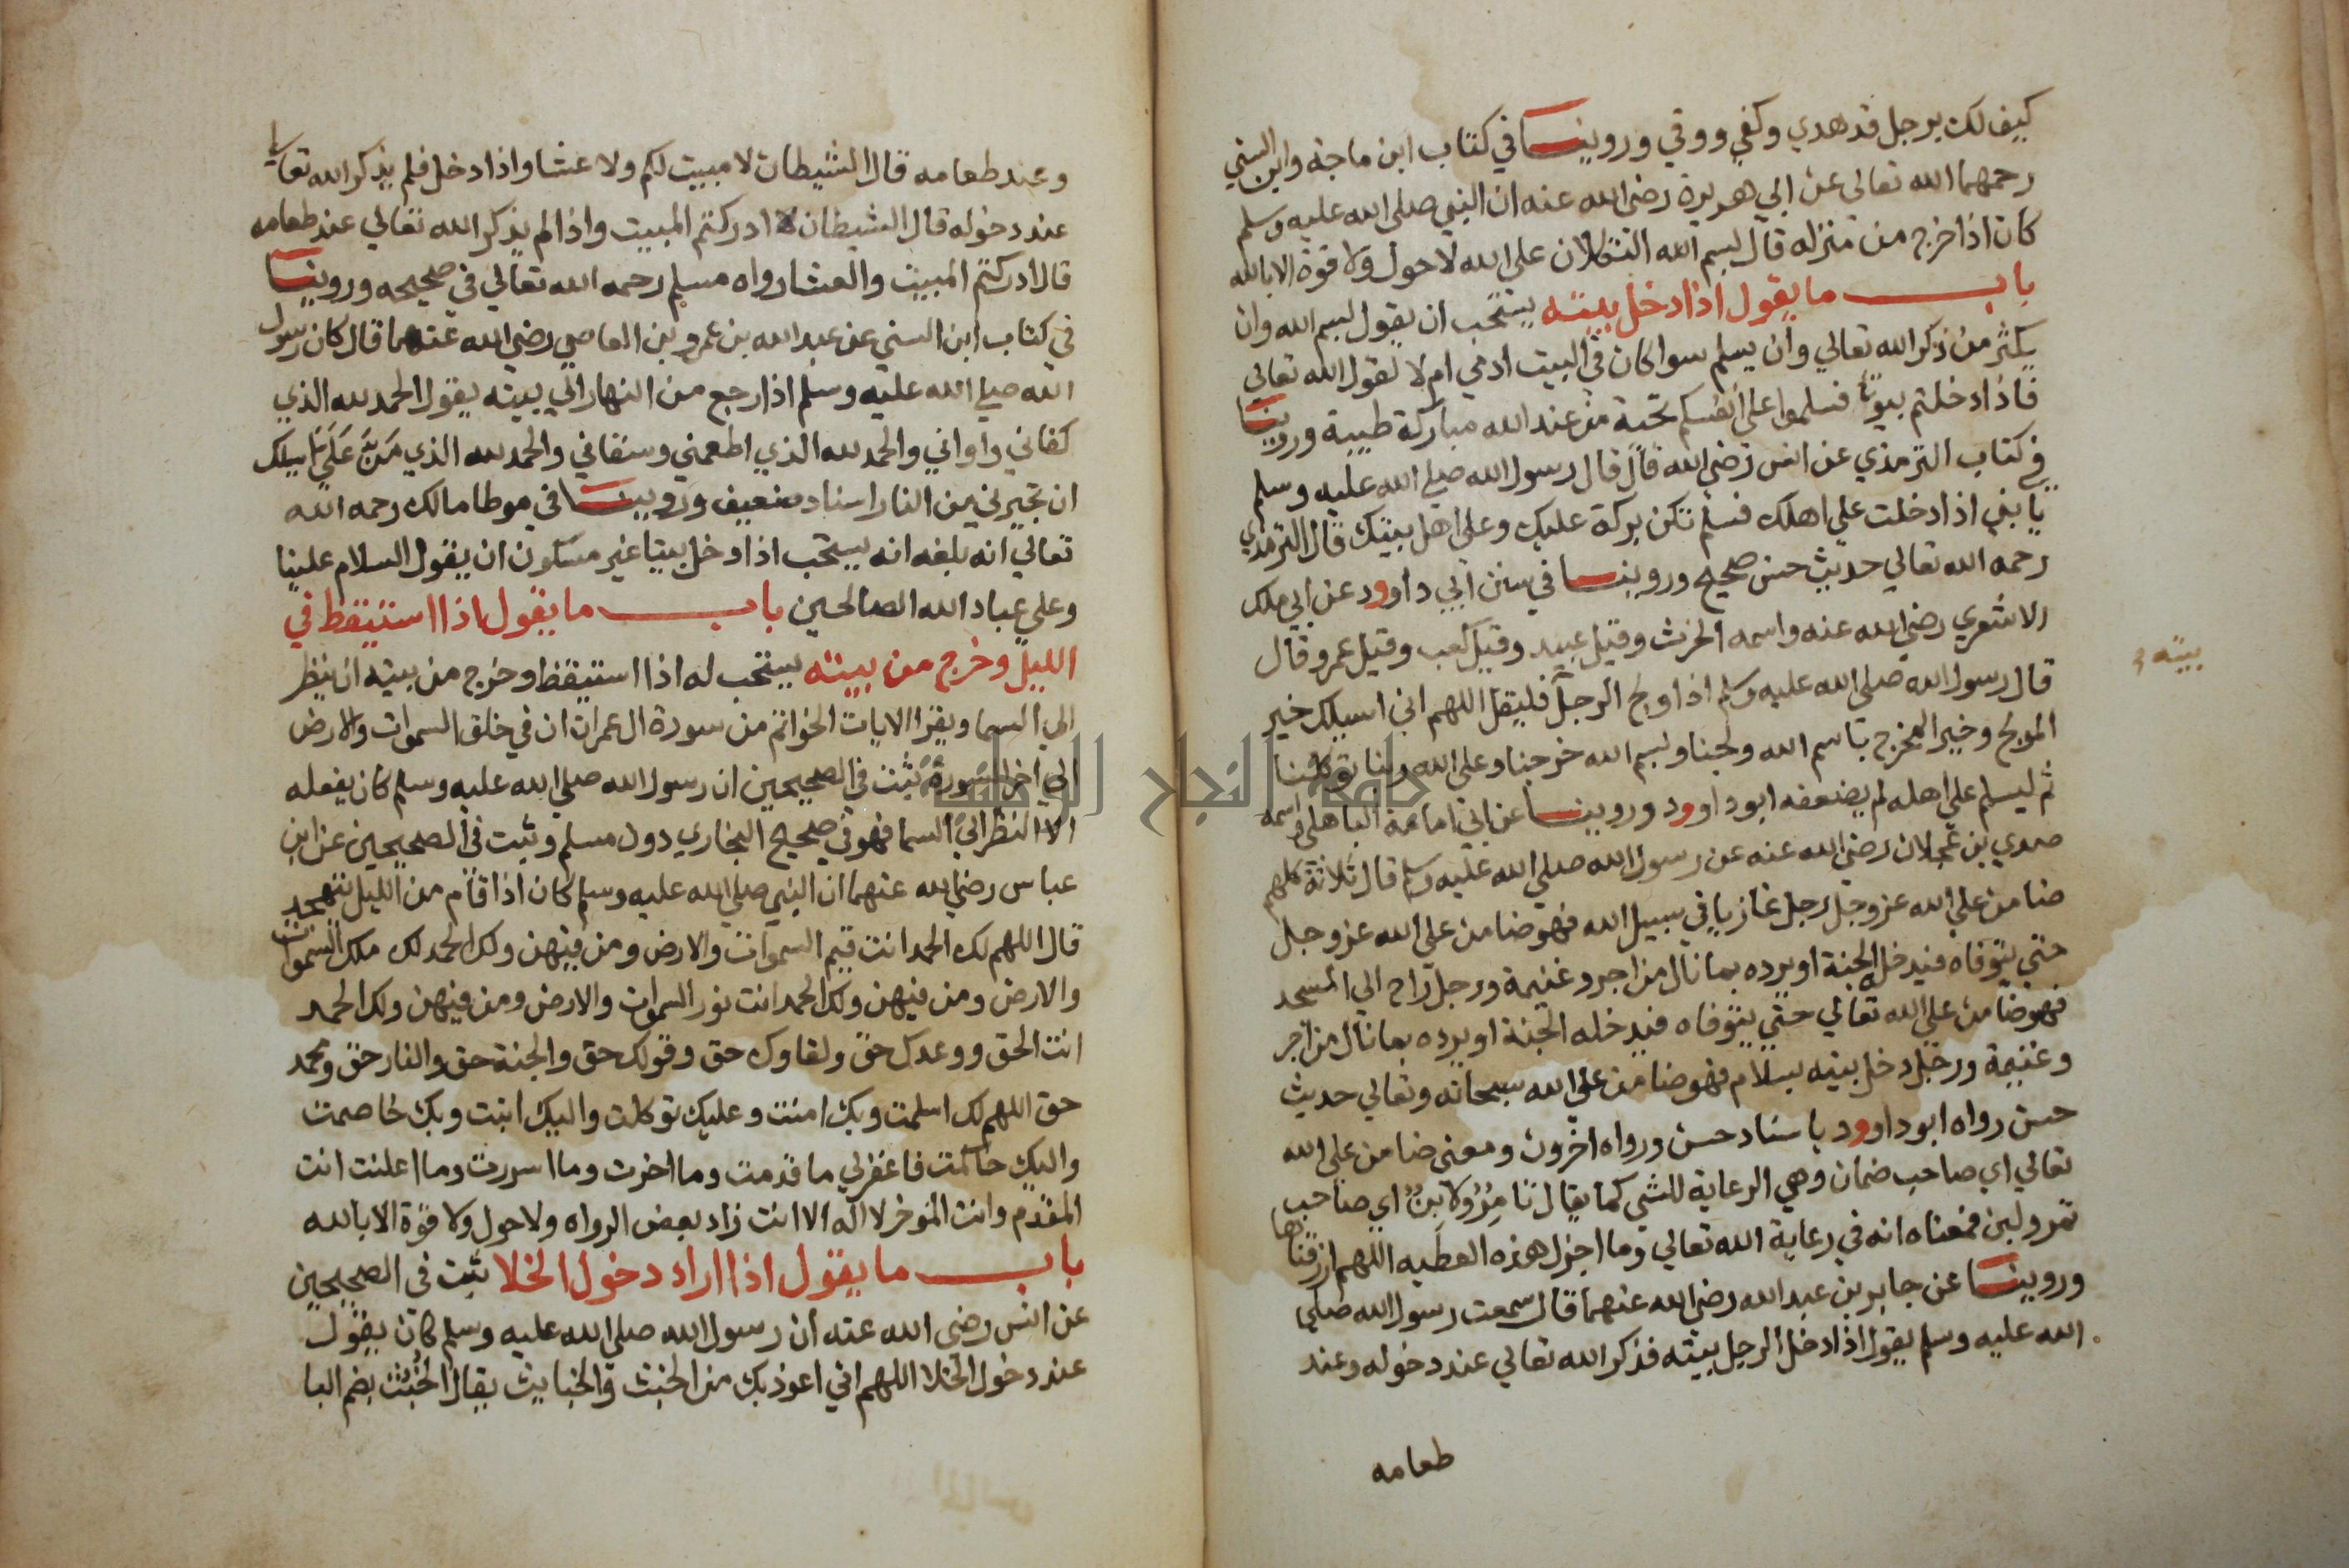 كيف لك برجل قد هدي وكفي ووقي وروينا في كتاب ابن ماجة وابن السني
رحمهما الله تعالى عن ابي هريرة رضي الله عنه ان النبي صلى الله عليه وسلم
كان اذا خرج من منزله قال بسم الله التكلان على الله لا حول ولا قوة الا بالله
باب ما يقول اذا دخل بيته يستحب ان يقول بسم الله وان
يكثر من ذكر الله تعالي وان يسلم سوا كان في البيت ادمي ام لا لقول الله تعالي
فاذا دخلتم بيوتا فسلموا على انفسكم تحية من عند الله مباركة طيبة وروينا
في كتاب الترمذي عن انس رضي الله قال قال رسول الله صلي الله عليه وسلم
يا بني اذا دخلت علي اهلك فسلم تكن بركة عليك وعلى اهل بيتك قال الترمذي
رحمه الله تعالي حديث حسن صحيح وروينا في سنن ابي داوود عن ابي ملك
الاشعري رضي الله عنه واسمه الحرث وقيل عبيد وقيل كعب وقيل عمرو قال
قال رسول الله صلى الله عليه وسلم اذا ولج الرجل فليقل اللهم اني اسيلك خير
بيته
المولج وخير المخرج باسم الله ولجنا وبسم الله خرجنا وعلى الله ربنا توكلنا
ثم ليسلم علي اهله لم يضعفه ابو داوود وروينا عن ابي امامة الباهلي واسمه
صدي بن عجلان رضي الله عنه عن رسول الله صلي الله عليه وسلم قال ثلاثة كلهم
ضامن علي الله عز وجل رجل غازيا في سبيل الله فهو ضامن على الله عز وجل
حتي يتوفاه فيدخل الجنة او يرده بما نال من اجر وغنيمة ورجل راح الي المسجد
فهو ضامن علي الله تعالي حتي يتوفاه فيدخله الجنة او يرده بما نال من اجر
وغنيمة ورجل دخل بيته بسلام فهو ضامن علي الله سبحانه وتعالي حديث
حسن رواه ابو داوود باسناد حسن ورواه اخرون ومعنى ضامن علي الله
تعالي اي صاحب ضمان وهي الرعاية للشي كما يقال تامر ولابن اي صاحب
تمر ولبن فمعناه انه في رعاية الله تعالي وما اجزل هذه العطيه اللهم ارزقناها
وروينا عن جابر بن عبد الله رضي الله عنهما قال سمعت رسول الله صلي
الله عليه وسلم يقول اذا دخل الرجل بيته فذكر الله تعالي عند دخوله وعند
طعامه
وعند طعامه قال الشيطان لا مبيت لكم ولا عشا واذا دخل فلم يذكر الله تعالي
عند دخوله قال الشيطان ادركتم المبيت واذا لم يذكر الله تعالي عند طعامه
قال ادركتم المبيت والعشا رواه مسلم رحمه الله تعالي في صحيحه وروينا
في كتاب ابن السني عن عبد الله بن عمرو بن العاصي رضي الله عنهما قال كان رسول
الله صلي الله عليه وسلم اذا رجع من النهار الي بيته يقول الحمد لله الذي
كفاني واواني والحمد لله الذي اطعمني وسقاني والحمد لله الذي من علي اسيلك
ان تجيرني من النار اسناد ضعيف وروينا في موطا مالك رحمه الله
تعالي انه بلغه انه يستحب اذا دخل بيتا غير مسكون ان يقول السلام علينا
وعلي عباد الله الصالحين باب ما يقول اذا استيقظ في
الليل وخرج من بيته يستحب له اذا استيقظ وخرج من بيته ان ينظر
الي السما ويقرا الايات الخواتم من سورة ال عمران ان في خلق السموات والارض
الي اخر السورة ثبت في الصحيحين ان رسول الله صلي الله عليه وسلم كان يفعله
الا النظر الي السما فهو في صحيح البخاري دون مسلم وثبت في الصحيحين عن ابن
عباس رضي الله عنهما ان النبي صلي الله عليه وسلم كان اذا قام من الليل يتهجد
قال اللهم لك الحمد انت قيم السموات والارض ومن فيهن ولك الحمد لك ملك السموات
والارض ومن فيهن ولك الحمد انت نور السموات والارض ومن فيهن ولك الحمد
انت الحق ووعدك حق ولقاوك حق وقولك حق والجنة حق والنار حق ومحمد
حق اللهم لك اسلمت وبك امنت وعليك توكلت واليك انبت وبك خاصمت
واليك حاكمت فاغفر لي ما قدمت وما اخرت وما اسررت وما اعلنت انت
المقدم وانت المؤخر لا اله الا انت زاد بعض الرواه ولا حول ولا قوة الا بالله
باب ما يقول اذا اراد دخول الخلا ثبت في الصحيحين
عن انس رضى الله عنه ان رسول الله صلى الله عليه وسلم كان يقول
عند دخول الخلا اللهم اني اعوذ بك من الخبث والخبايث يقال الخبث بضم البا
جامعة النجاح الوطنية